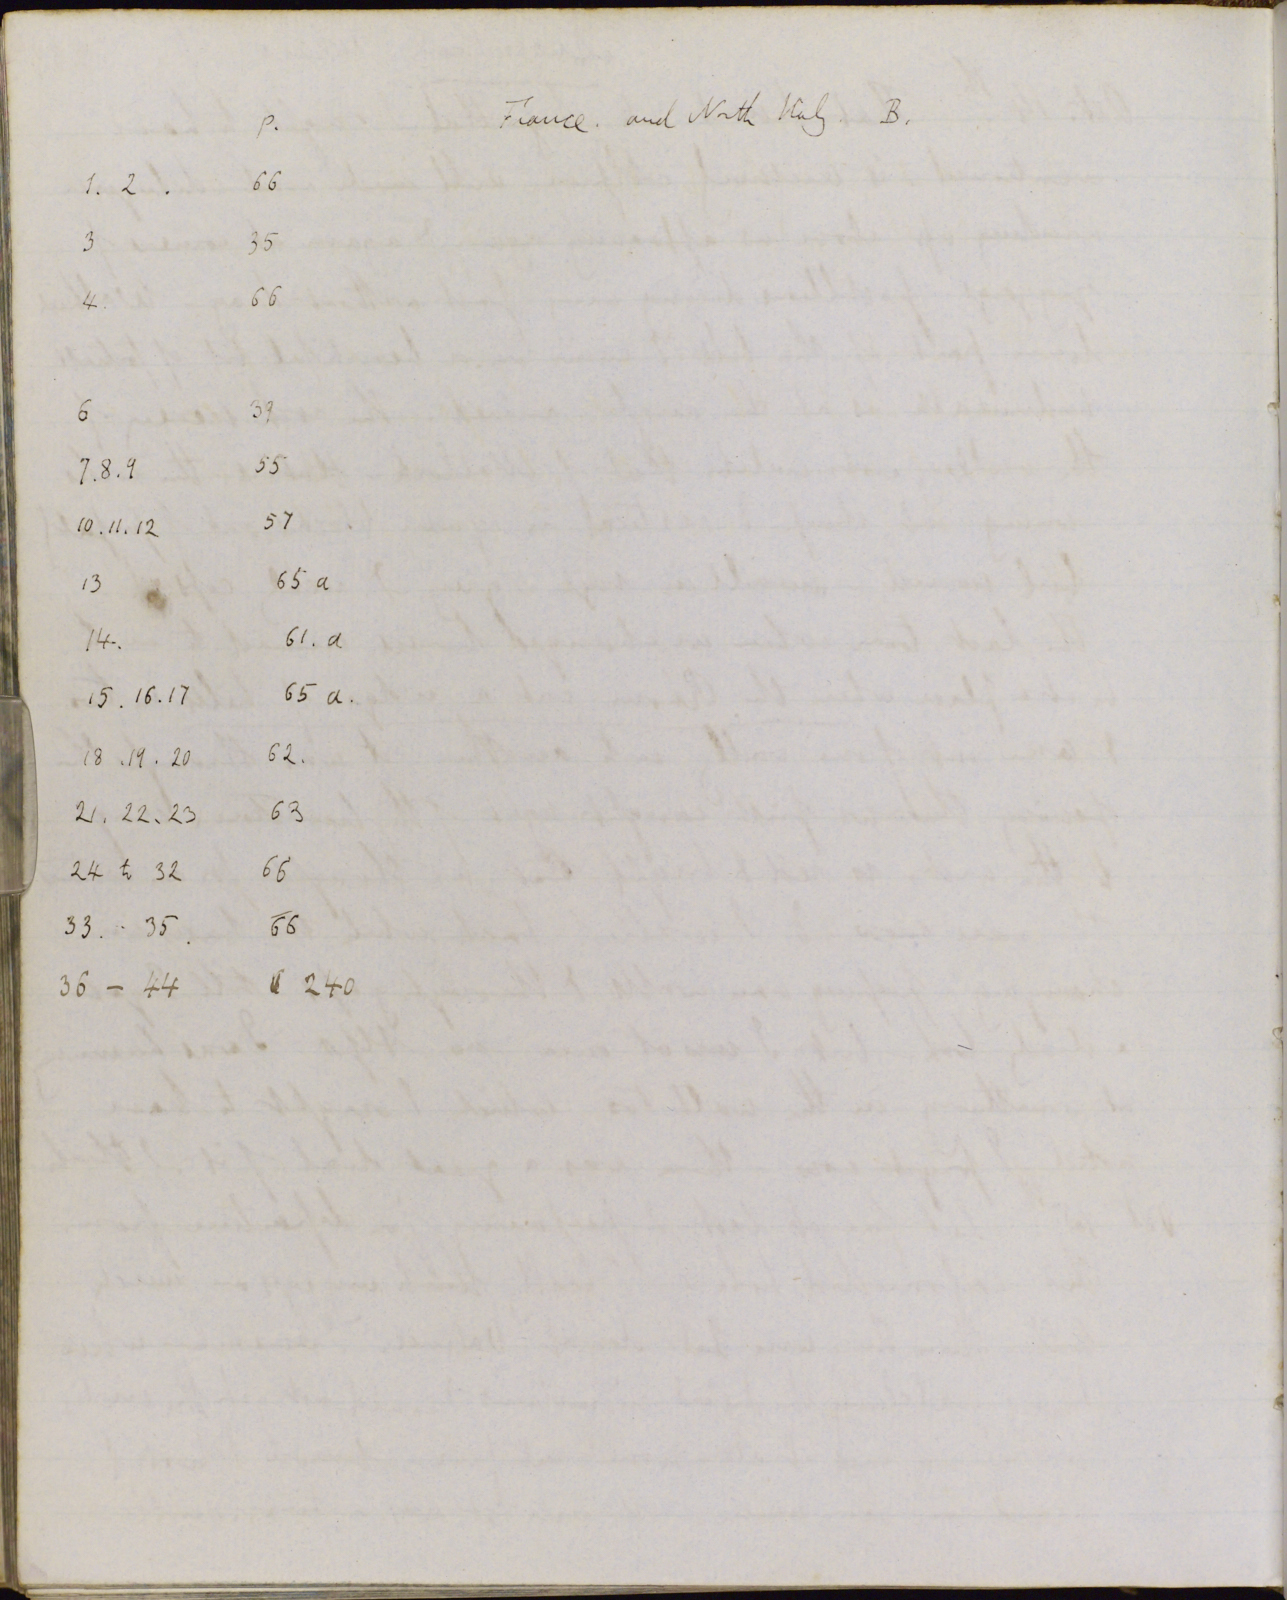 p. France. and North Italy. B.
1. 2 . 66
3 35
4. 66
6 39
7.8.9 55
10.11.12 57
13 65 a
14. 61. a
15. 16.17 65 a.
18 .19. 20 62.
21. 22.23 63
24 to 32 66
33. - 35. 66
36 - 44 240